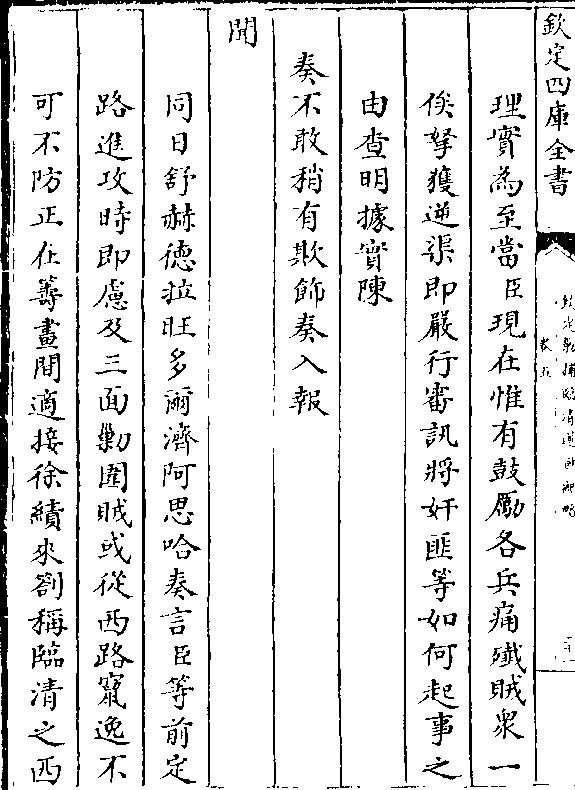 欽定四庫全書
欽定剿捕臨清逆匪紀略
卷五
理實為至當臣現在惟有鼓勵各兵痛殲賊衆一
俟拏獲逆渠即嚴行審訊將奸匪等如何起事之
由查明據實陳
奏不敢稍有欺飾奏入報
聞
同日舒赫德拉旺多爾濟阿思哈奏言臣等前定
路進攻時即慮及三面勦圍賊或從西路竄逸不
可不防正在籌畫間適接徐績來劄稱臨清之西